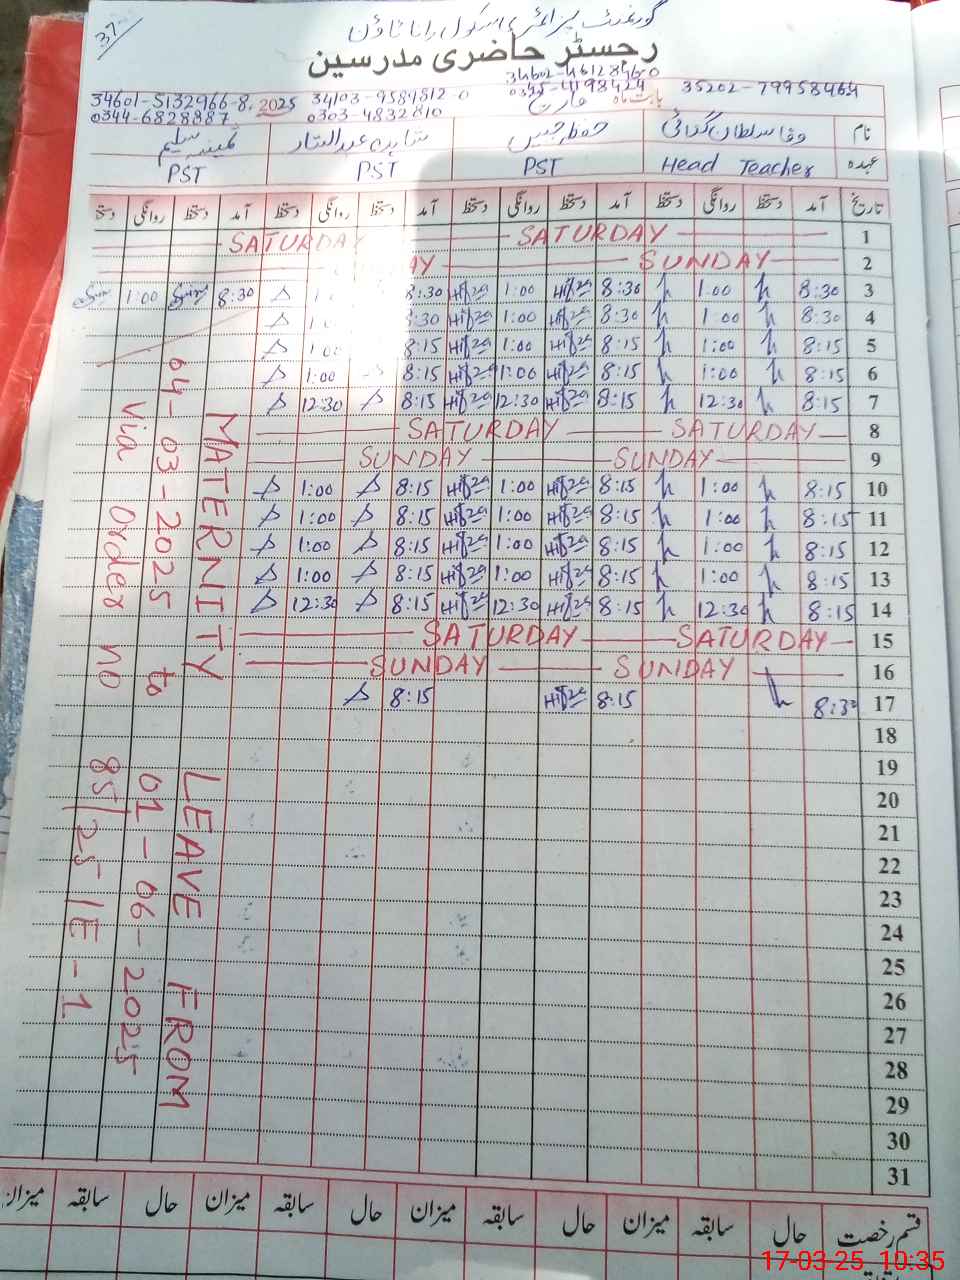 37
گورنمنٹ پرائمری سکول رانا ٹاؤن
رجسٹر حاضری مدرسین
34602-4612846-0
34601-5132466-8. 2025 34103-9584812-0 0345-4198424 بابت ماہ مارچ 35202-7995846
0344-6828887 0303-4832810
نام وفا سلطان شاہدہ عبدالستار ثمینہ سلیم
عہدہ Head Teacher PST PST PST
تاریخ آمد دستخط روانگی دستخط آمد دستخط روانگی دستخط آمد دستخط روانگی دستخط آمد دستخط روانگی دستخط
1 SATURDAY SATURDAY
2 SUNDAY
3 8:30 1:00 8:30 1:00 8:30 8:30 1:00
4 8:30 1:00 8:30 1:00 8:30
5 8:15 1:00 8:15 1:00 8:15 1:00
6 8:15 1:00 8:15 1:00 8:15 1:00
7 8:15 12:30 8:15 12:30 8:15 12:30
8 SATURDAY SATURDAY
9 SUNDAY SUNDAY
10 8:15 1:00 8:15 1:00 8:15 1:00
11 8:15 1:00 8:15 1:00 8:15 1:00
12 8:15 1:00 8:15 1:00 8:15 1:00
13 8:15 1:00 8:15 1:00 8:15 1:00
14 8:15 12:30 8:15 12:30 8:15 12:30
15 SATURDAY SATURDAY
16 SUNDAY SUNDAY
17 8:30 8:15 8:15
18
19
20
21
22
23
24
25
26
27
28
29
30
31
MATERNITY LEAVE FROM
04-03-2025 to 01-06-2025
Via Order no 85/25/E-1
قسم رخصت حال سابقہ میزان حال سابقہ میزان حال سابقہ میزان حال سابقہ میزان
17-03-25 10:35